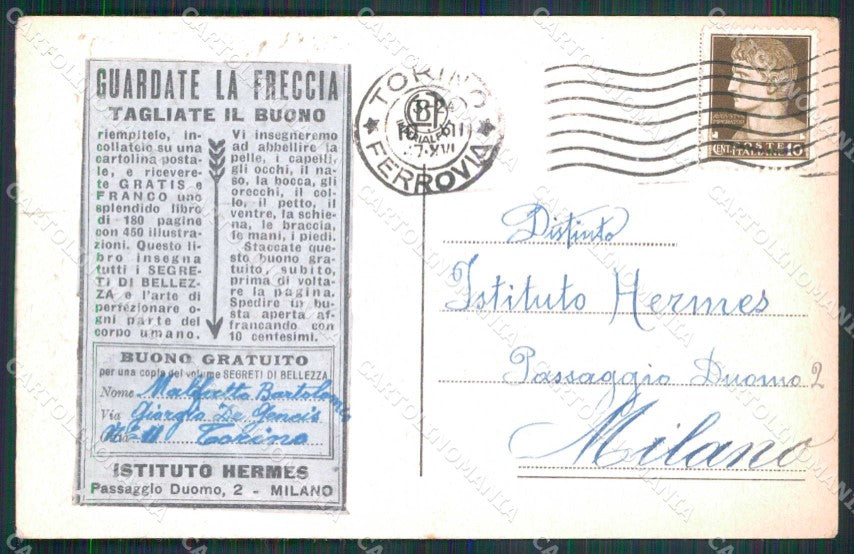 GUARDATE LA FRECCIA
TAGLIATE IL BUONO
riempitelo, in-
collatelo su una
cartolina posta-
le, e ricevere-
te GRATIS e
FRANCO uno
splendido libro
di 180 pagine
con 450 illustra-
zioni. Questo li-
bro insegna
tutti i SEGRE-
TI DI BELLEZ-
ZA e l'arte di
perfezionare o-
gni parte del
corpo umano.
Vi insegneremo
ad abbellire la
pelle, i capelli,
gli occhi, il na-
so, la bocca, gli
orecchi, il col-
lo, il petto, il
ventre, la schie-
na, le braccia,
le mani, i piedi.
Staccate que-
sto buono gra-
tuito, subito,
prima di volta-
re la pagina.
Spedire in bu-
sta aperta af-
francando con
10 centesimi.
BUONO GRATUITO
per una copia del volume SEGRETI DI BELLEZZA
Nome Bartolomeo
Via Giorgio De Geneis
Torino
ISTITUTO HERMES
Passaggio Duomo, 2 - MILANO
TORINO
FERROVIA
POSTE
CENT ITALIANE 10
Distinto
Istituto Hermes
Passaggio Duomo 2
Milano
CARTOLINOMANIA